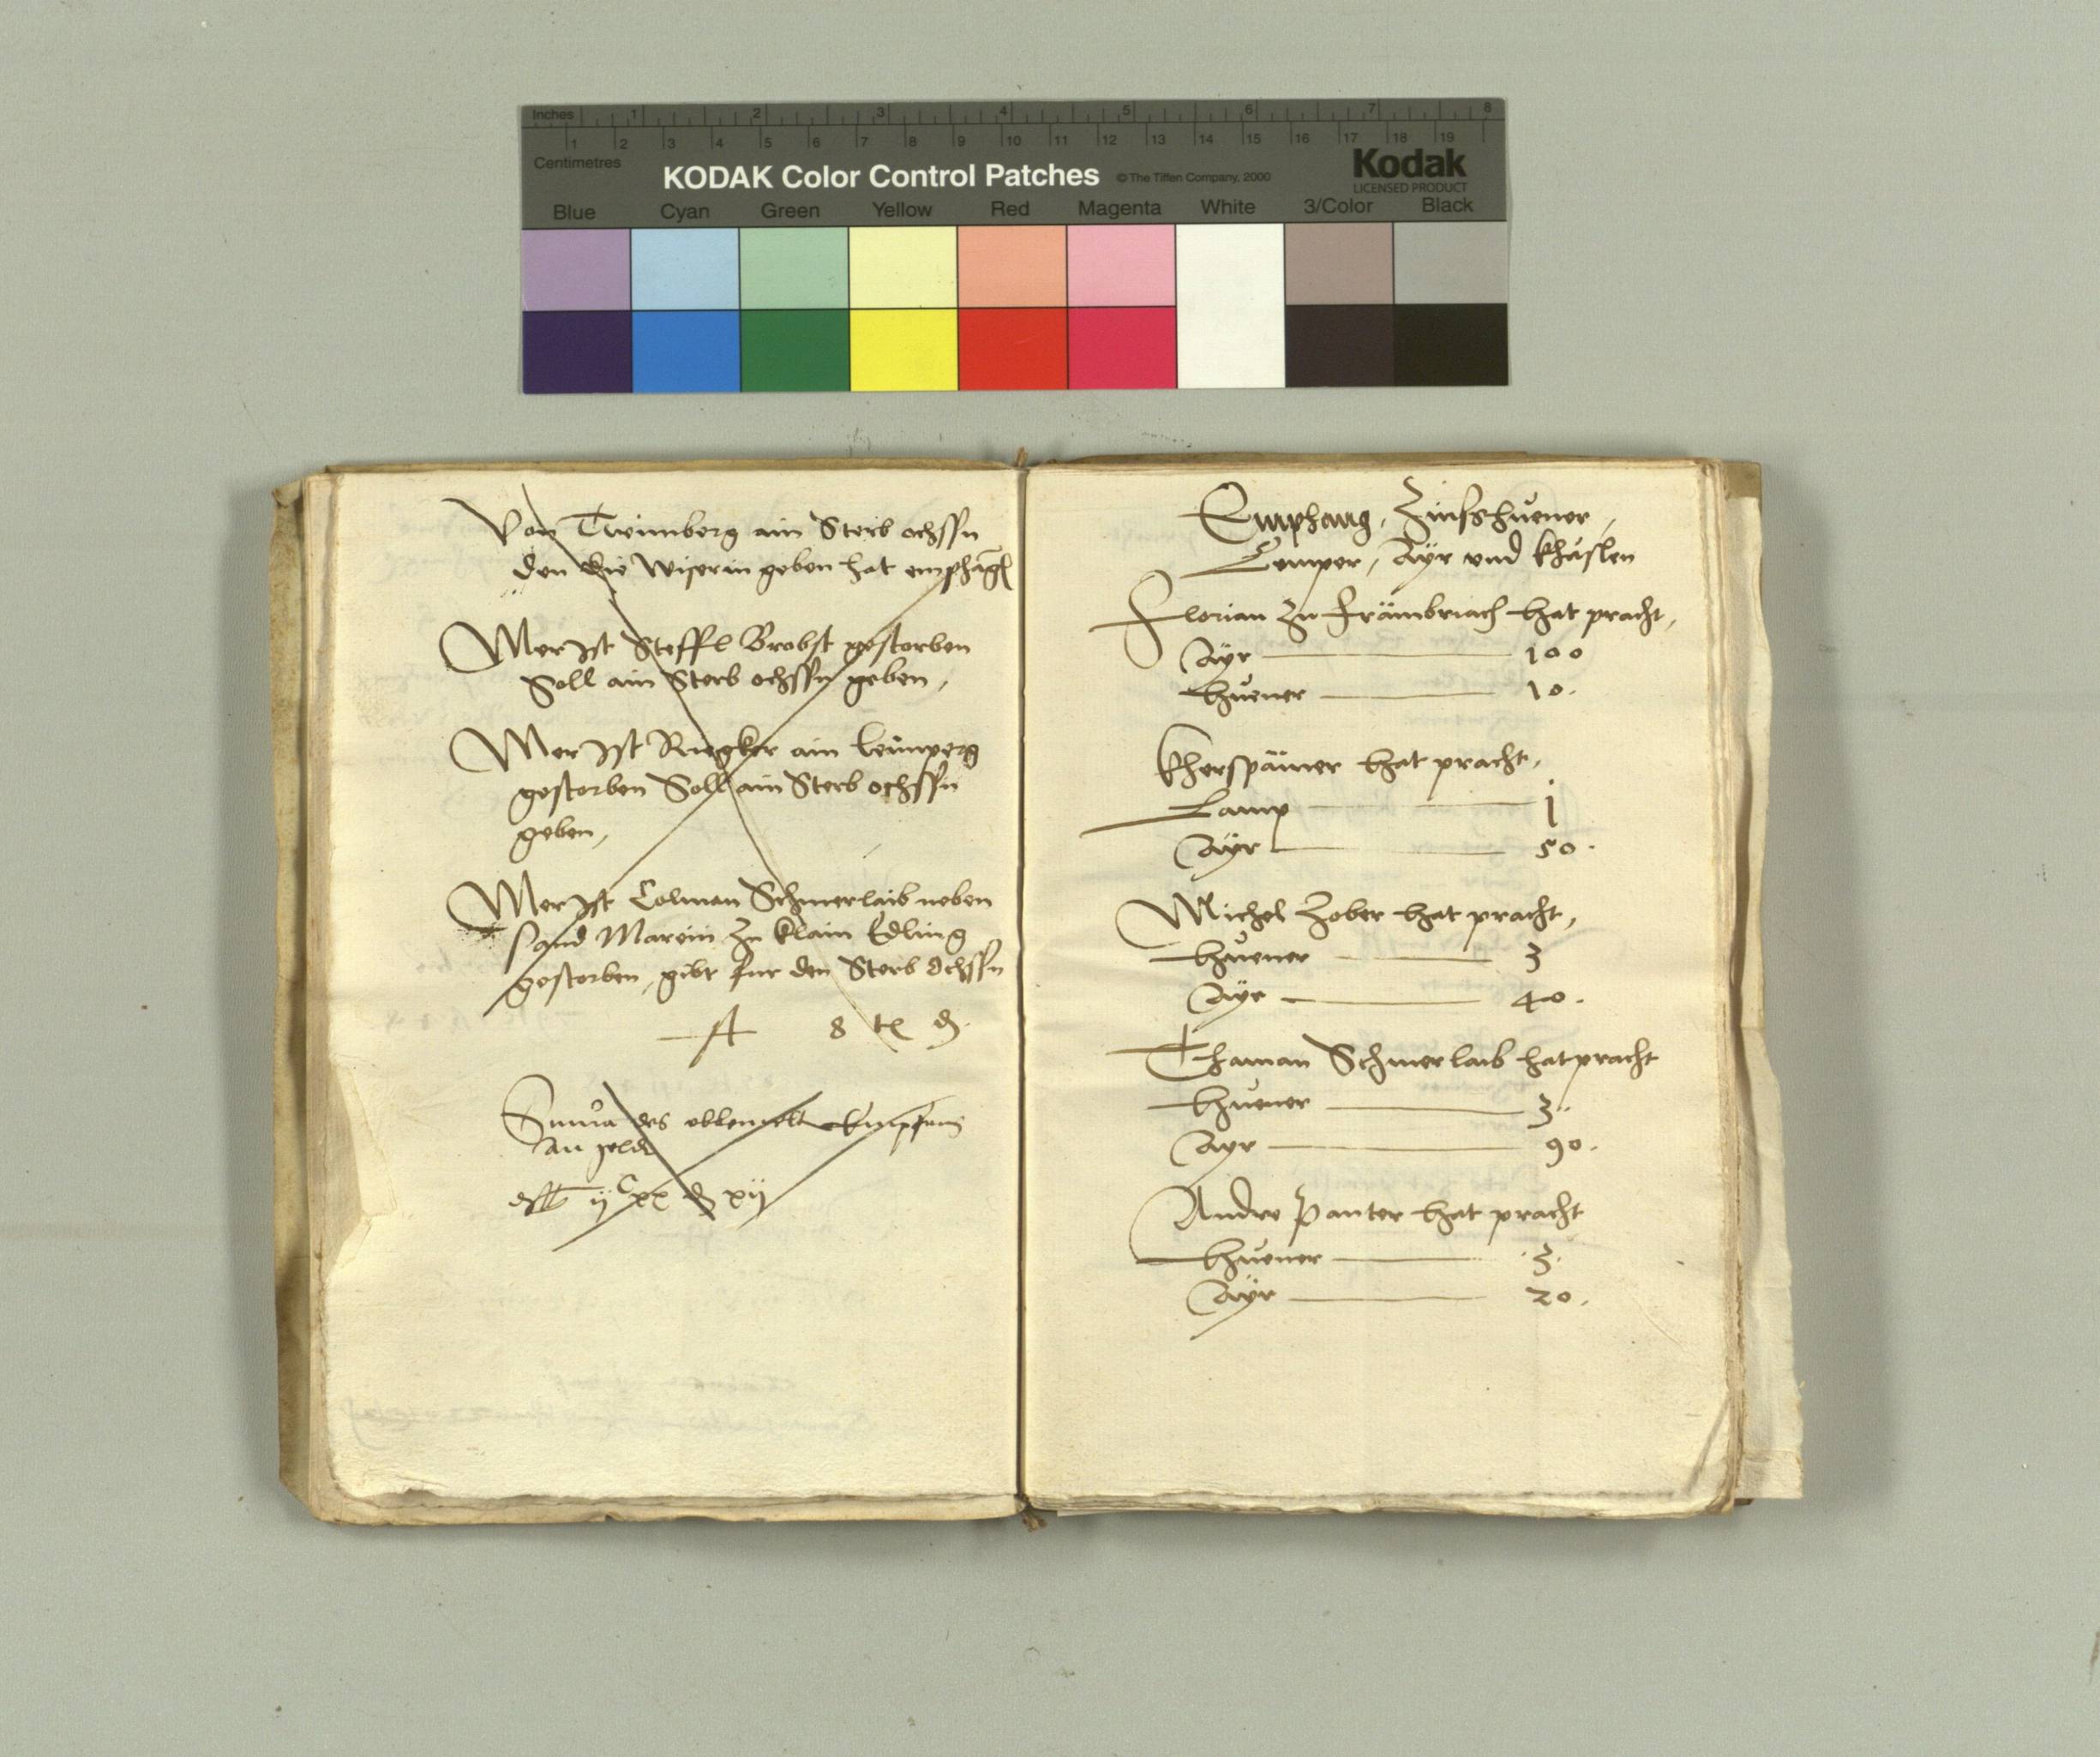 Inches 1 2 3 4 5 6 7 8
1 2 3 4 5 6 7 8 9 10 11 12 13 14 15 16 17 18 19
Centimetres
KODAK Color Control Patches ©The Tiffen Company, 2000 Kodak
LICENSED PRODUCT
Blue Cyan Green Yellow Red Magenta White 3/Color Black
Von Twimberg ain Sterb ochssn
den die Wiserin geben hat
Mer Ist Steffl Brobst gestorben
Soll ain Sterb ochssn geben,
Mer Ist Ruegker am
gestorben Soll ain Sterb ochssn
geben,
Mer Ist Colman Schmerlaib neben
sand Marein zu klain Edling
gestorben, gibt fur den Sterb Ochssn
8
Suma des Empfang
an geld
xij
Emphang, Zinsshuener,
Lemper, Ayr und khäslen
Florian zu Främbriach hat pracht,
Ayr 100
huener 10.
Kherspämer hat pracht,
Lamp 1
Ayr 50.
Michel Zober hat pracht,
huener 3
Ayr 40.
Thaman Schmerlaib hat pracht
huener 3.
Ayr 90.
Andre Panter hat pracht
huener 3.
Ayr 20.